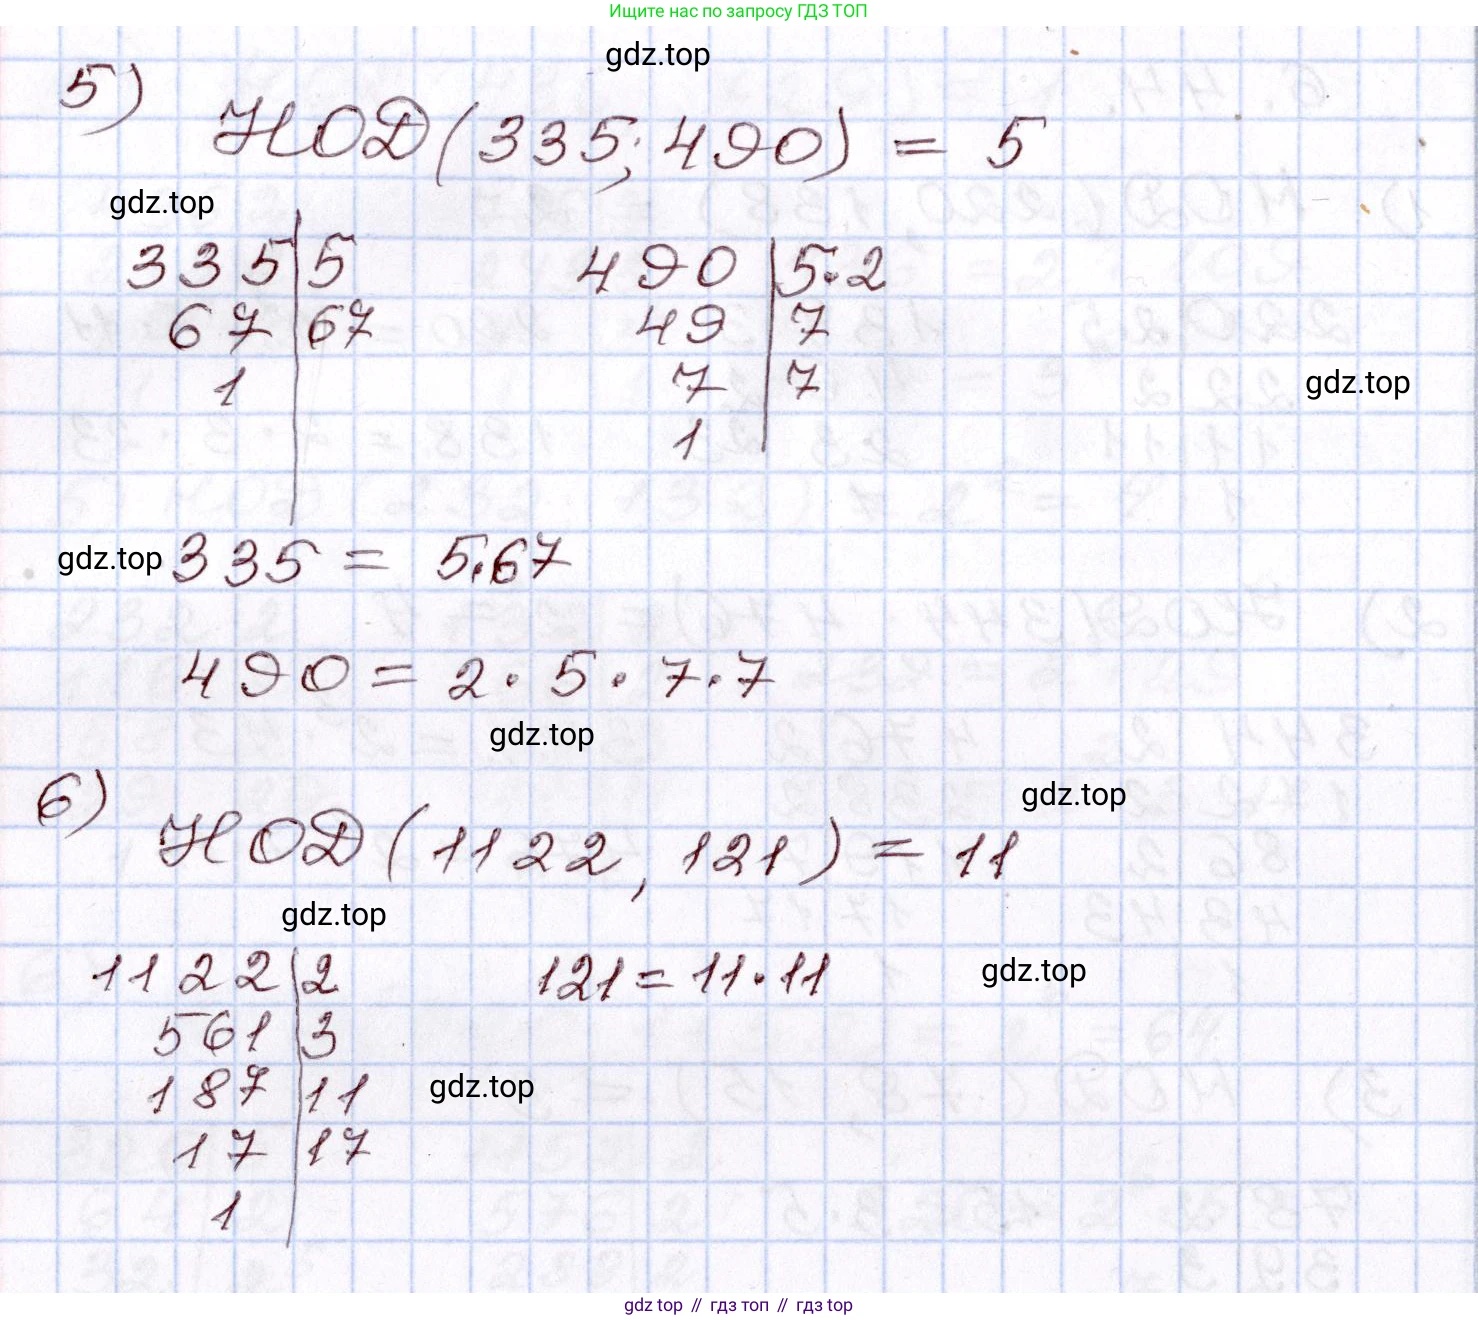 Ищите нас по запросу ГДЗ ТОП
gdz.top
5)
НОД(335; 490) = 5
gdz.top
335 | 5 490 | 5·2
67 | 67 49 | 7
1 7 | 7
gdz.top
1
gdz.top
335 = 5·67
490 = 2·5·7·7
gdz.top
6)
gdz.top
НОД(1122, 121) = 11
gdz.top
1122 | 2 121 = 11·11
gdz.top
561 | 3
187 | 11
gdz.top
17 | 17
1
gdz top // гдз топ // гдз top